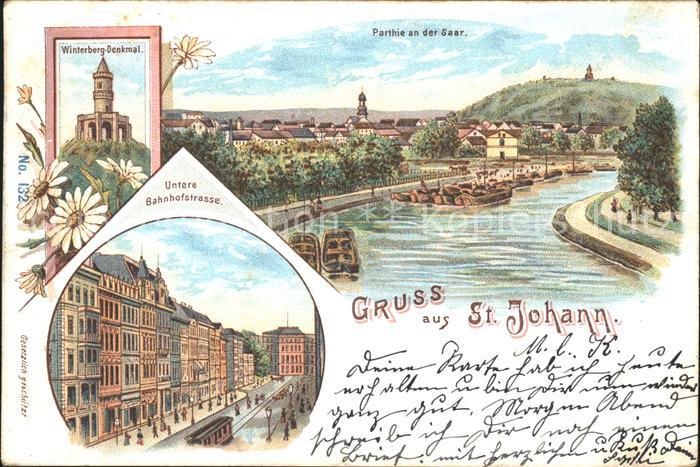 Winterberg-Denkmal.
Parthie an der Saar.
No. 132
Untere
Bahnhofstrasse.
Gesetzlich geschützt
GRUSS
aus St. Johann.
M. l. K.
Deine Karte hab ich heute
erhalten u bin Dir nun wieder
ganz gut. Morgen Abend
schreib ich Dir noch einen
Brief. mit herzlichen u Kuß Dein